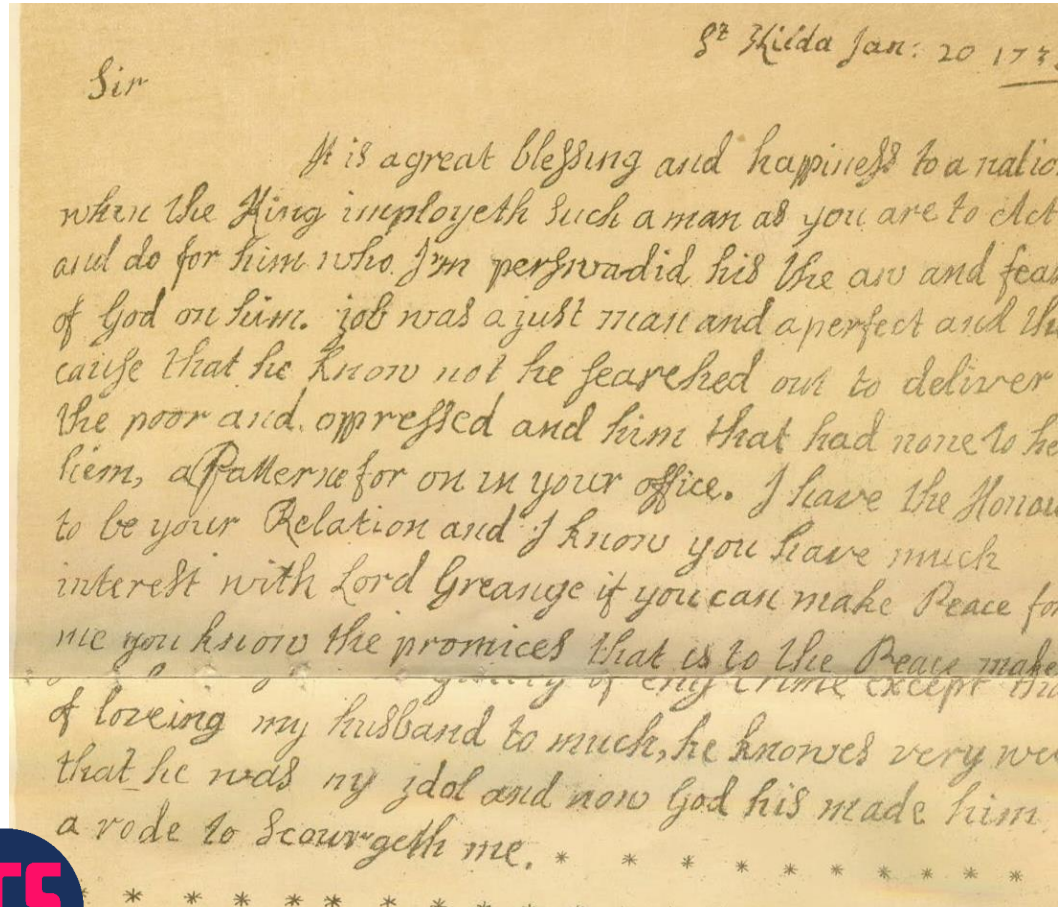 St Kilda Jan: 20 173
Sir
It is a great blessing and happiness to a natio
when the King imployeth such a man as you are to Act
and do for him who I'm perswadid his the aw and fear
of God on him. job was a just man and a perfect and the
cause that he know not he searched out to deliver
the poor and oppressed and him that had none to he
him, a Patterne for on in your office. I have the Honou
to be your Relation and I know you have much
interest with Lord Greange if you can make Peace for
me you know the promices that is to the Peace make
guilty of eny crime except
of loveing my husband to much, he knowes very we
that he was my idol and now God his made him
a rode to scourgeth me. * * * * * * * * *
* * * * * * * * * *
TS